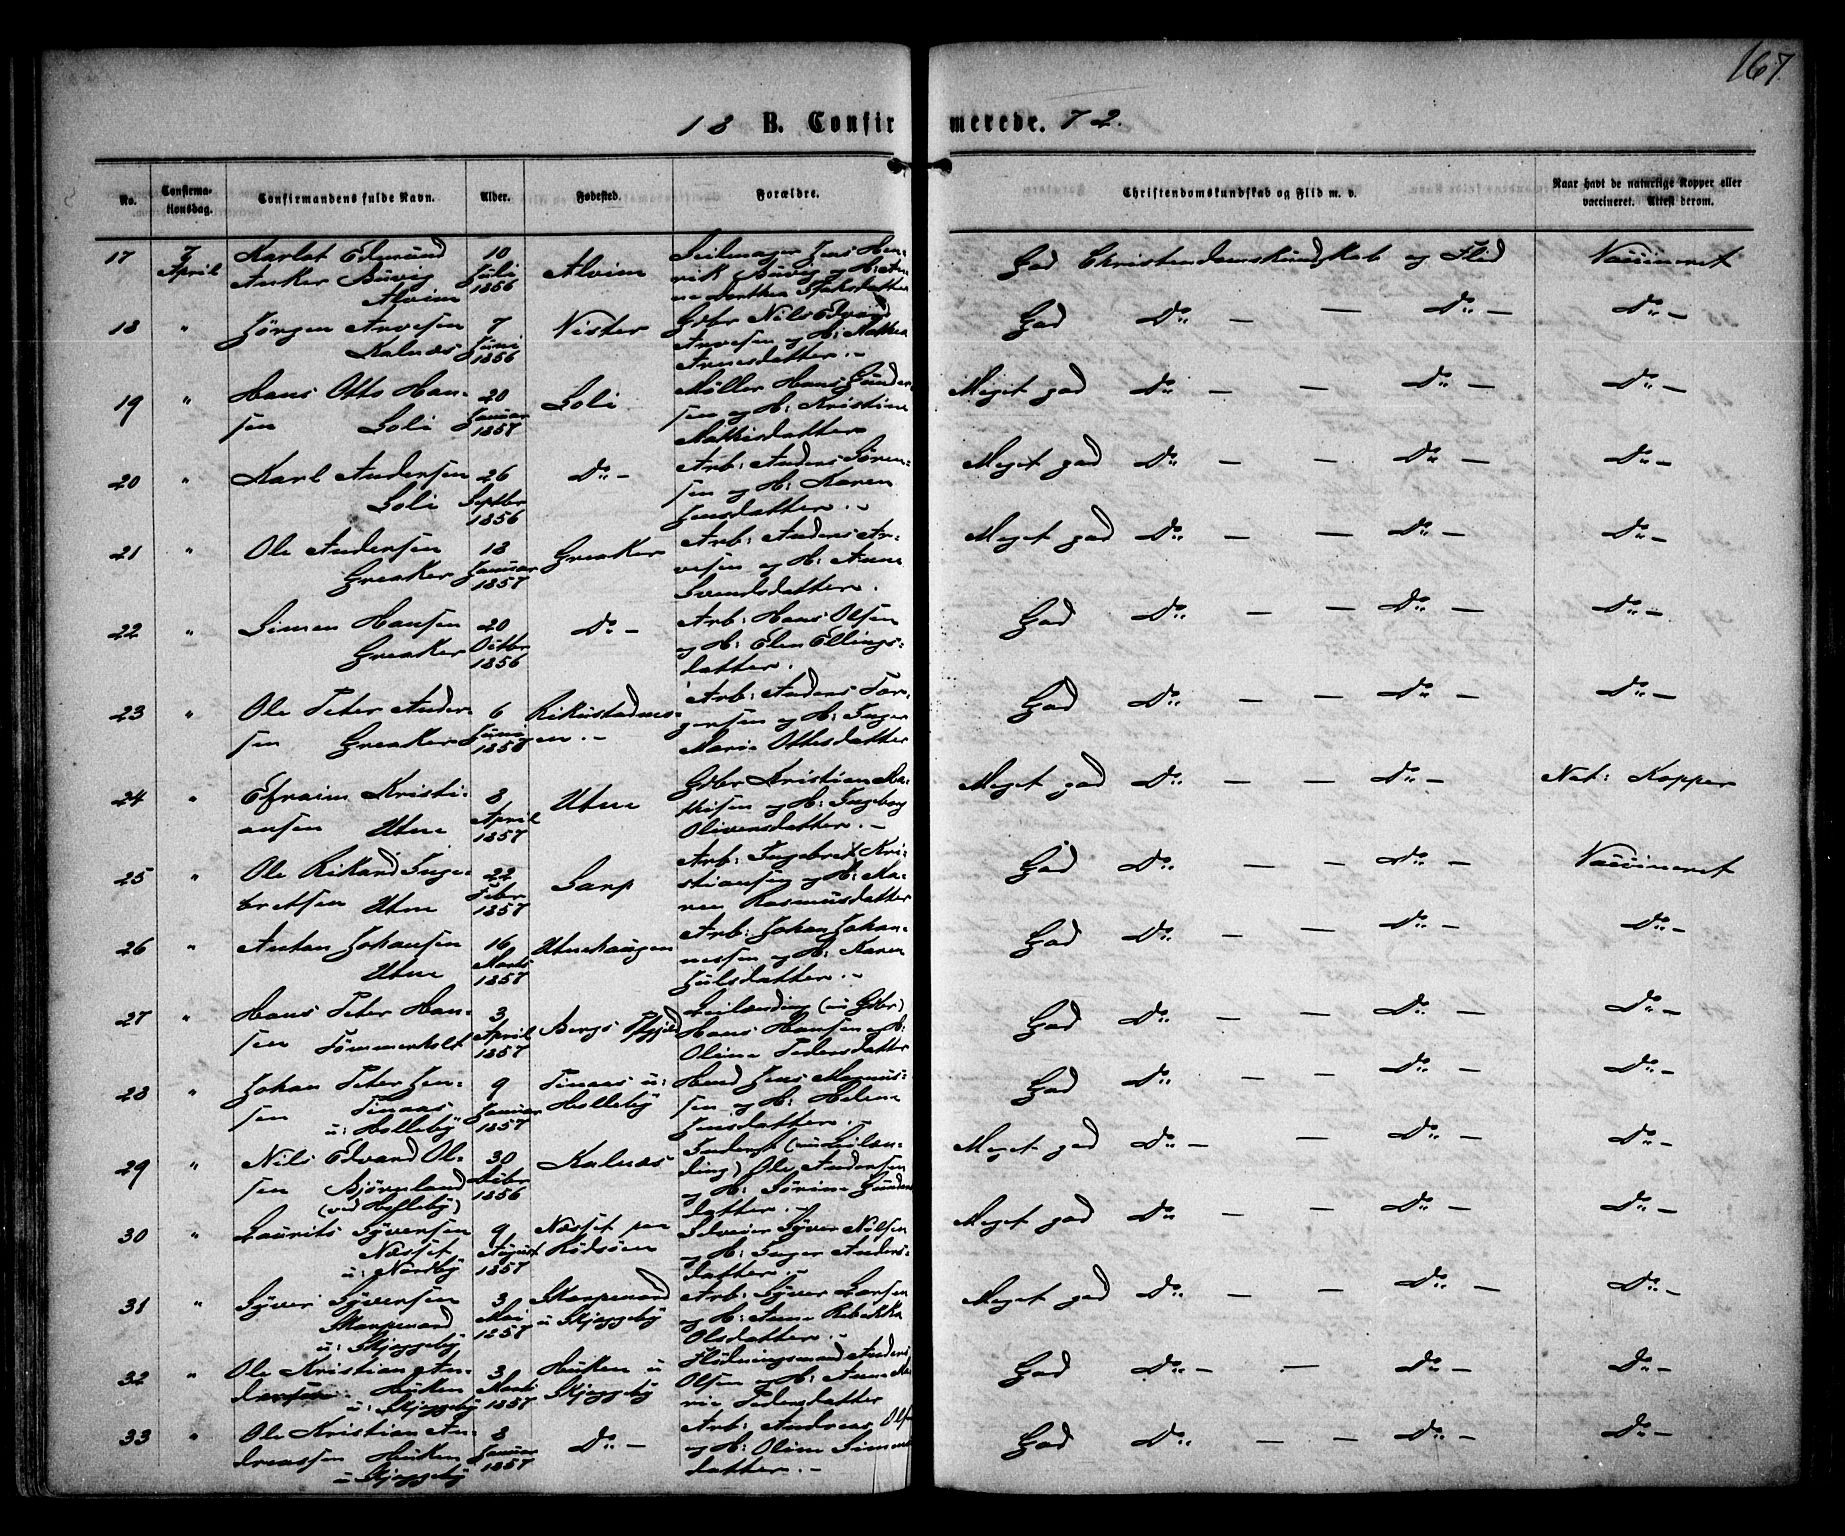 167.
18 B. Confirmerede. 72.
No.
Confirma-
tionsdag.
Confirmandens fulde Navn.
Alder.
Fødested.
Forældre.
Christendomskundskab og Flid m. v.
Naar havt de naturlige Kopper eller
vaccineret. Attest derom.
17 7 April Edmund
Anker Buvig
Alvim
10 Juli 1856
Alvim
Seilmager Jens Hen-
rik Buvig og H:
God Christendomskundskab og Flid
Vaccineret
18 " Jörgen Arvesen
Kalnæs
7 Juni 1856
Nister
Gdbr Nils Edvard
Arvesen og H:
Arnesdatter. -
God Do - - Do - Do -
19 " Hans Otto Han-
sen Loli
20 Januar 1857
Loli
Møller Hans Gunder-
sen og H: Kristine
Mathisdatter
Meget god Do - - Do - Do -
20 " Karl Andersen
Loli
26 Septbr 1856
Do -
Arb: Anders Sören-
sen og H: Karen
Jensdatter. -
Meget god Do - - Do - Do -
21 " Ole Andersen
Greaker
18 Januar 1857
Greaker
Arb: Anders Ar-
vesen og H: Anne
Svendsdatter.
Meget god Do - - Do - Do -
22 " Simen Hansen
Greaker
20 Octbr 1856
Do -
Arb: Hans Olsen
og H: Elen Ellings-
datter.
God Do - - Do - Do -
23 " Ole Peter Ander-
sen Greaker
6 Juni
Arb: Anders Tor-
gersen og H: Inger
Marie Ottesdatter
God Do - - Do - Do -
24 " Efraim Kristi-
ansen Utne
8 April 1857
Utne
Gdbr Kristian Ma-
thisen og H: Ingebog
Oliversdatter. -
Meget god Do - - Do - Nat: Kopper
25 " Ole Rikard Inge-
bretsen Utne
22 Febr 1857
Sarp
Arb: Ingebret Kri-
stiansen og H: Ma-
ren Rasmusdatter
God Do - - Do - Vaccineret
26 " Anton Johansen
Utne
16 Marts 1857
Utnehaugen
Arb: Johan Johan-
nessen og H: Karen
Julsdatter. -
God Do - - Do - Do -
27 " Hans Peter Han-
sen Tömmerholt
3 April 1857
Bergs Pgjld
Leilænding (u: Gdbr)
Hans Hansen og H:
Oline Pedersdatter
God Do - - Do - Do -
28 " Johan Peter Jen-
sen Tinaas
u: Holleby
9 Januar 1857
Tinaas u:
Holleby
Husd Jens Magnus-
sen og H: Helene
Jensdatter. -
God Do - - Do - Do -
29 " Nils Edvard Ol-
sen Björnland
(ved Holleby)
30 Debr 1856
Kalnæs
Inderst (u: Leilæn-
ding) Ole Andersen
og H: Sörine Gunders-
datter. -
Meget god Do - - Do - Do -
30 " Laurits Syversen
Næsset
u: Nordby
9 August 1857
Næsset paa
Rödsöen
Selveier Syver Nilsen
og H: Inger Anders-
datter. -
Meget god Do - - Do - Do -
31 " Syver Syversen
Skarpenord
u: Skjeggeby
3 Mai 1857
Skarpenord
u Skjeggeby
Arb: Syver Larsen
og H: Anne Rebekka
Olsdatter. -
Meget god Do - - Do - Do -
32 " Ole Kristian An-
dersen Huken
u: Skjeggeby
3 Marts 1857
Huken u
Skjeggeby
Flödningsmand Anders
Olsen og H: Anne Ma-
rie Pedersdatter
God Do - - Do - Do -
33 " Ole Kristian An-
dreassen Huken
u Skjeggeby
8 Januar 1857
Do -
Arb: Andreas Olsen
og H: Oline Simens-
datter. -
God Do - - Do - Do -